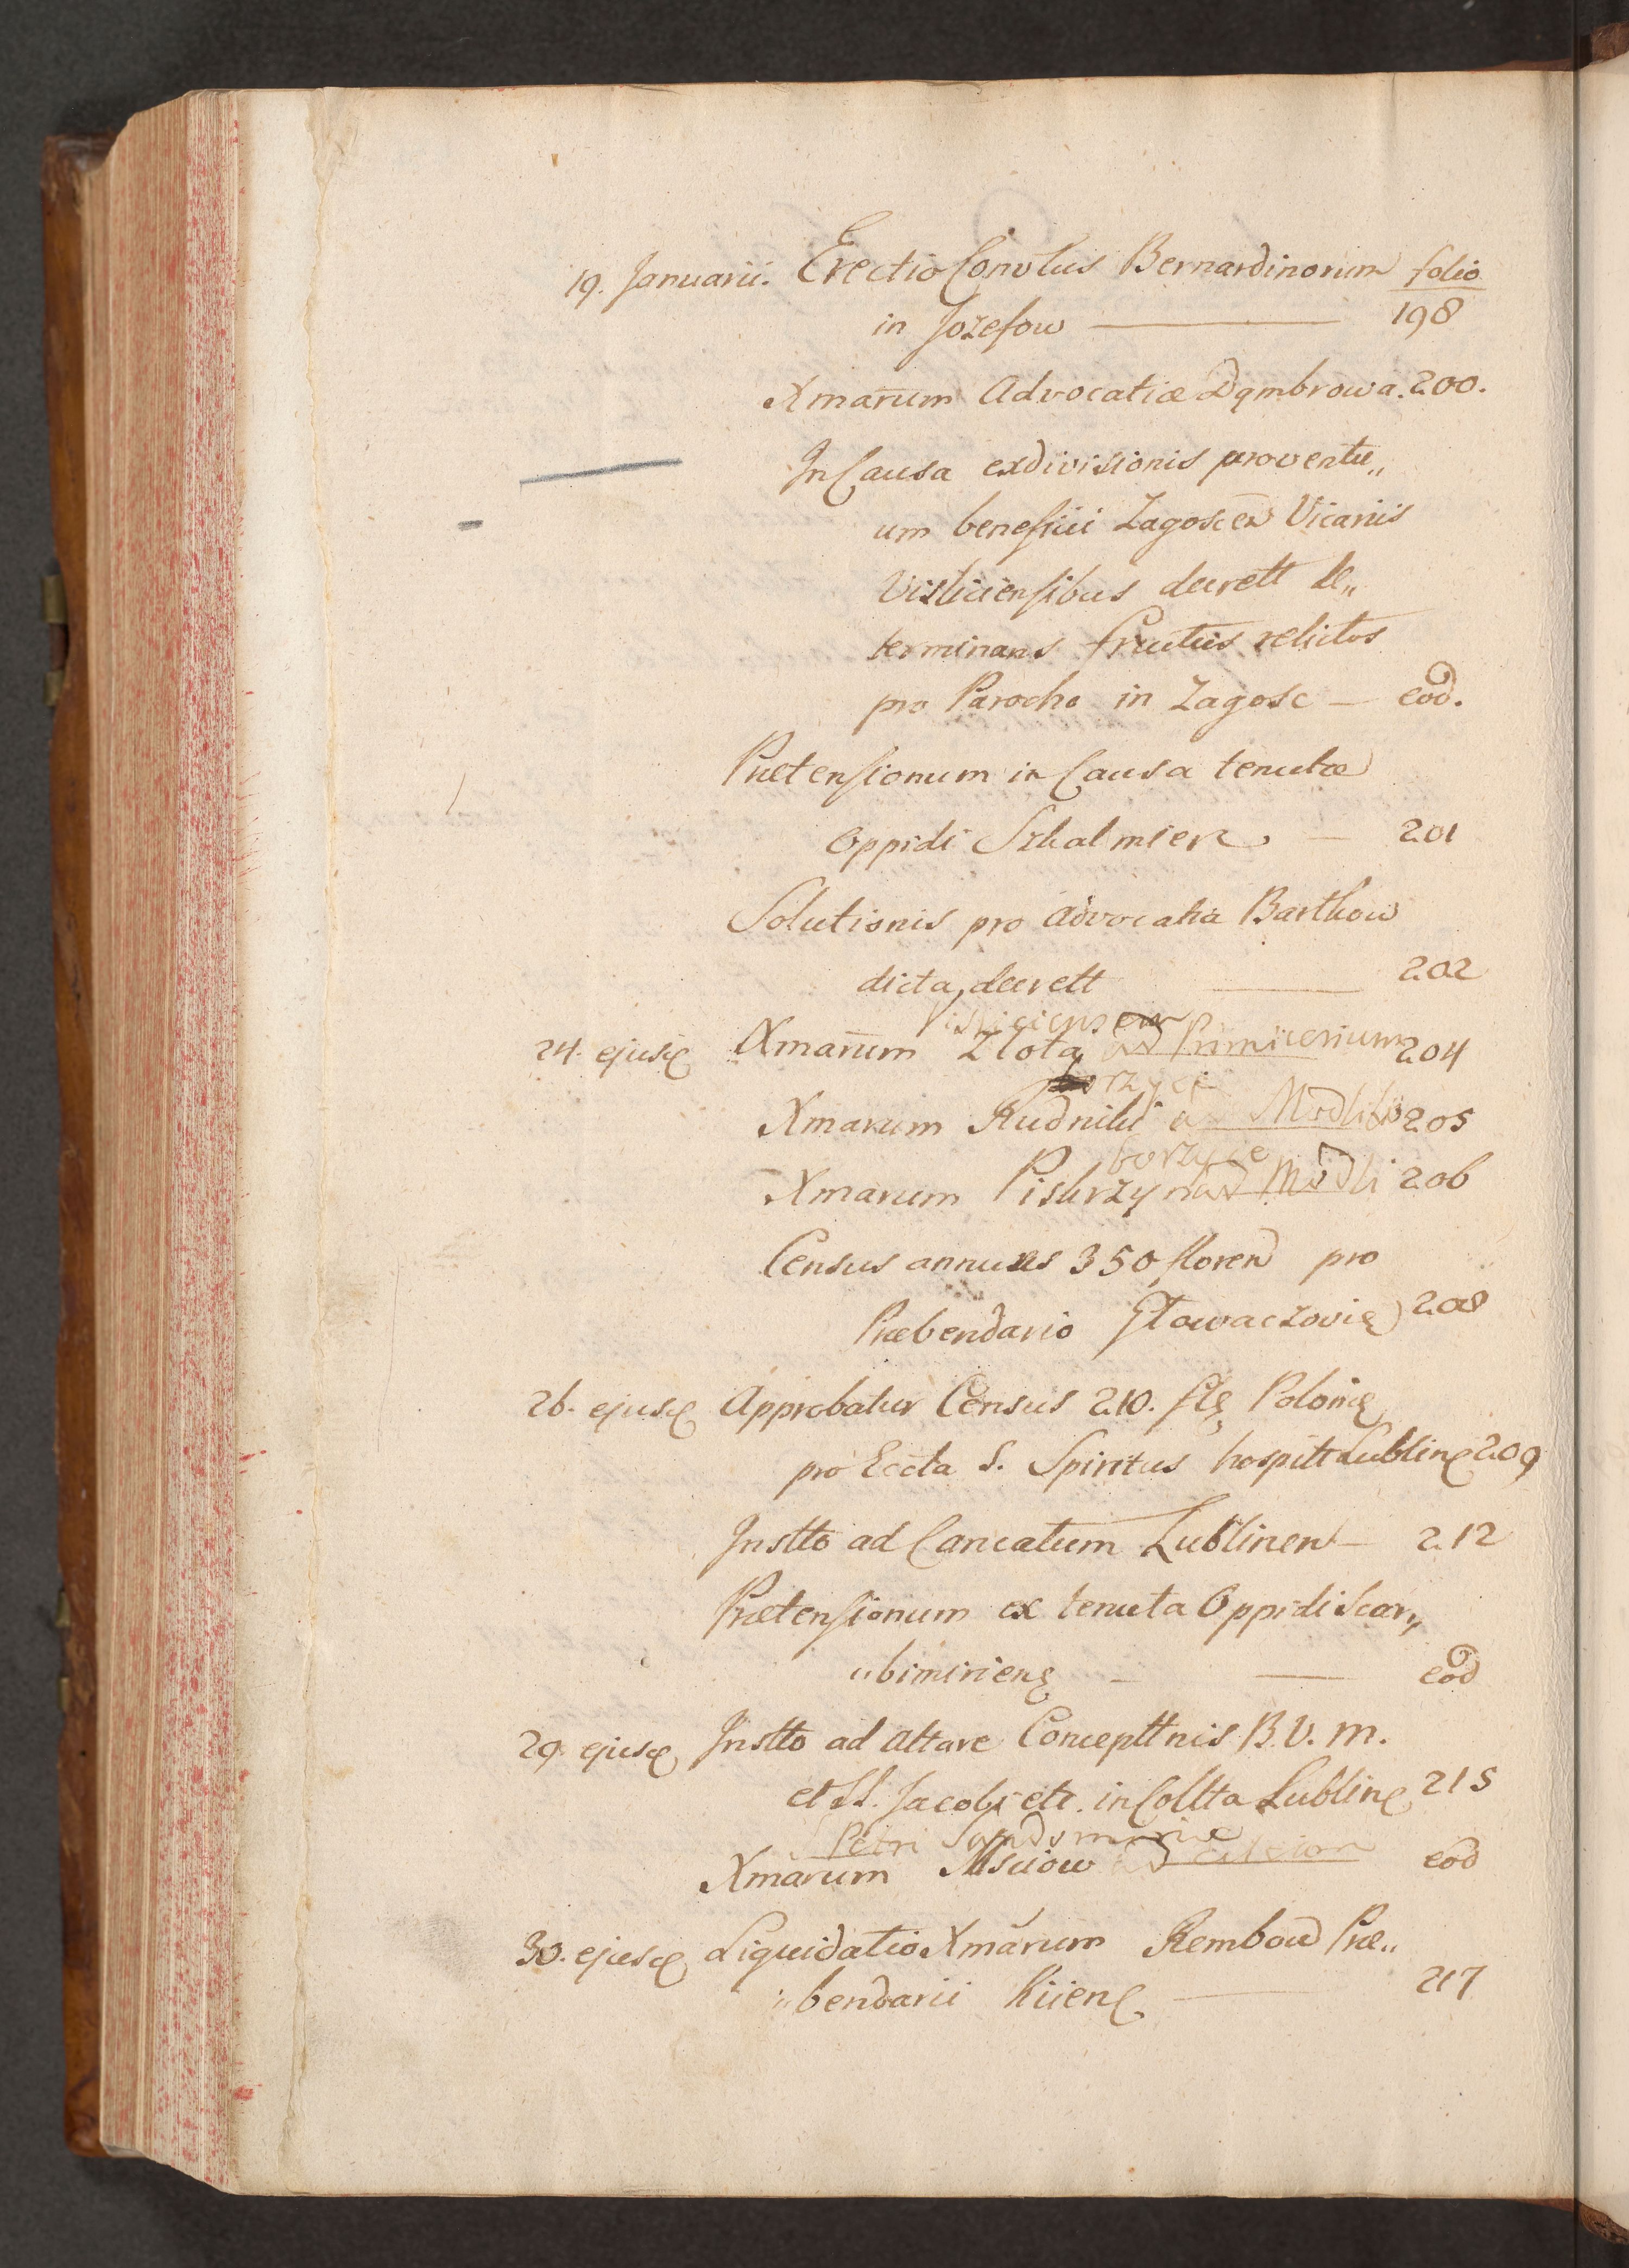 19. Januarii. Erectio Convtus Bernardinorum folio
in Jozefow — 198
Xmarum Advocatiæ Dąmbrowa. 200.
In Causa exdivisionis proventu„
um beneficii Zagoscen Vicariis
Visliciensibus decrett de„
terminans fructus relictos
pro Parocho in Zagosc — eod.
Prætensionum in Causa tenutæ
Oppidi Skalmierz — 201
Solutionis pro advocatia Bartkow
dicta, decrett — 202
Visliciensem
24. ejusd Xmarum Zlota ad Primicerium 204
borzyce
Xmarum Rudniki Modli 205
borzyce
Xmarum Piskrzyn ad Modli 206
Census annuus 350 floren pro
Præbendario Głowaczovie 208
26. ejusd Approbatur Census 210. fle Polonie
pro Eccla S. Spiritus hospitt Lubline 209
Instto ad Cancatum Lublinen — 212
Prætensionum ex tenuta Oppidi Scar„
„bimiriens — eod
29. ejusd Instto ad Altare Concepttnis B. V. M.
et SS. Jacobi etc. in Collta Lubline 215
S Petri Sandomiriæ
Xmarum Msciow ad eod
30. ejusd Liquidatio Xmarum Rembow Præ„
„bendarii Kiiens — 217